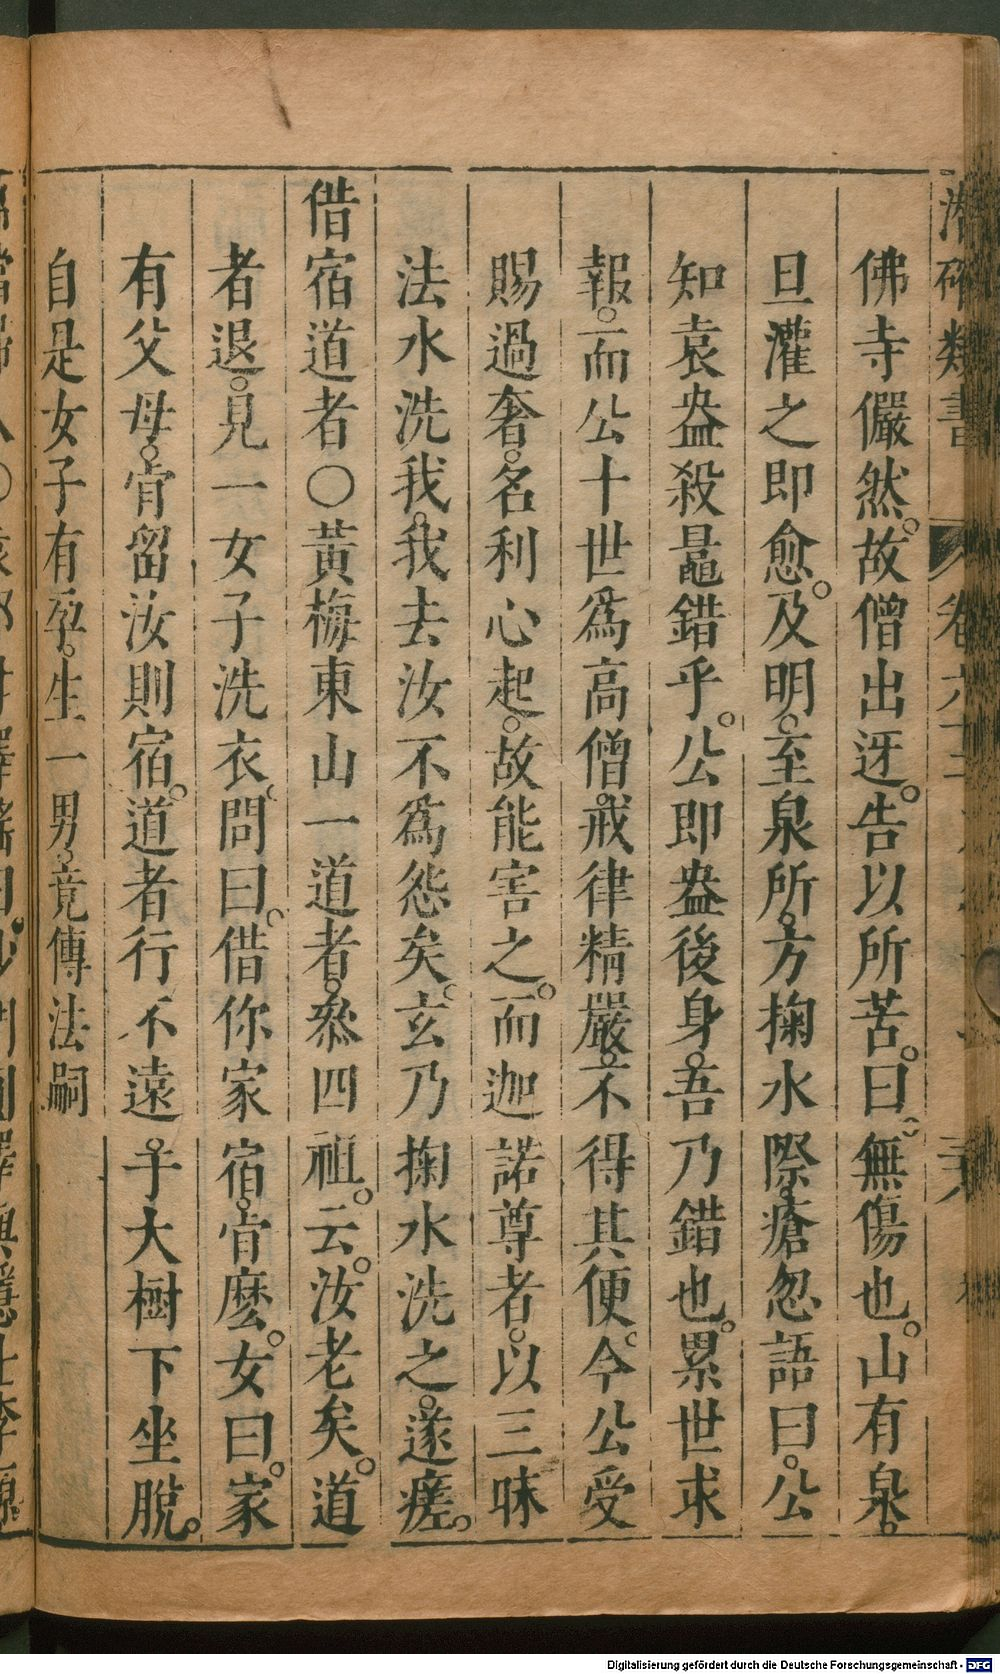 佛寺儼然。故僧出迓。告以所苦。曰。無傷也。山有泉。
旦灌之即愈。及明。至泉所。方掬水際。瘡忽語曰。公
知袁盎殺鼂錯乎。公即盎後身。吾乃錯也。累世求
報。而公十世爲高僧。戒律精嚴。不得其便。今公受
賜過奢。名利心起。故能害之。而迦諾尊者。以三昧
法水洗我。我去汝不爲怨矣。玄乃掬水洗之。遂瘥。
借宿道者〇黃梅東山一道者。叅四祖。云。汝老矣。道
者退。見一女子洗衣。問曰。借你家宿。肯麽。女曰。家
有父母。肯留汝則宿。道者行不遠。于大樹下坐脫。
自是女子有孕。生一男。竟傳法嗣
Digitalisierung gefördert durch die Deutsche Forschungsgemeinschaft - DFG